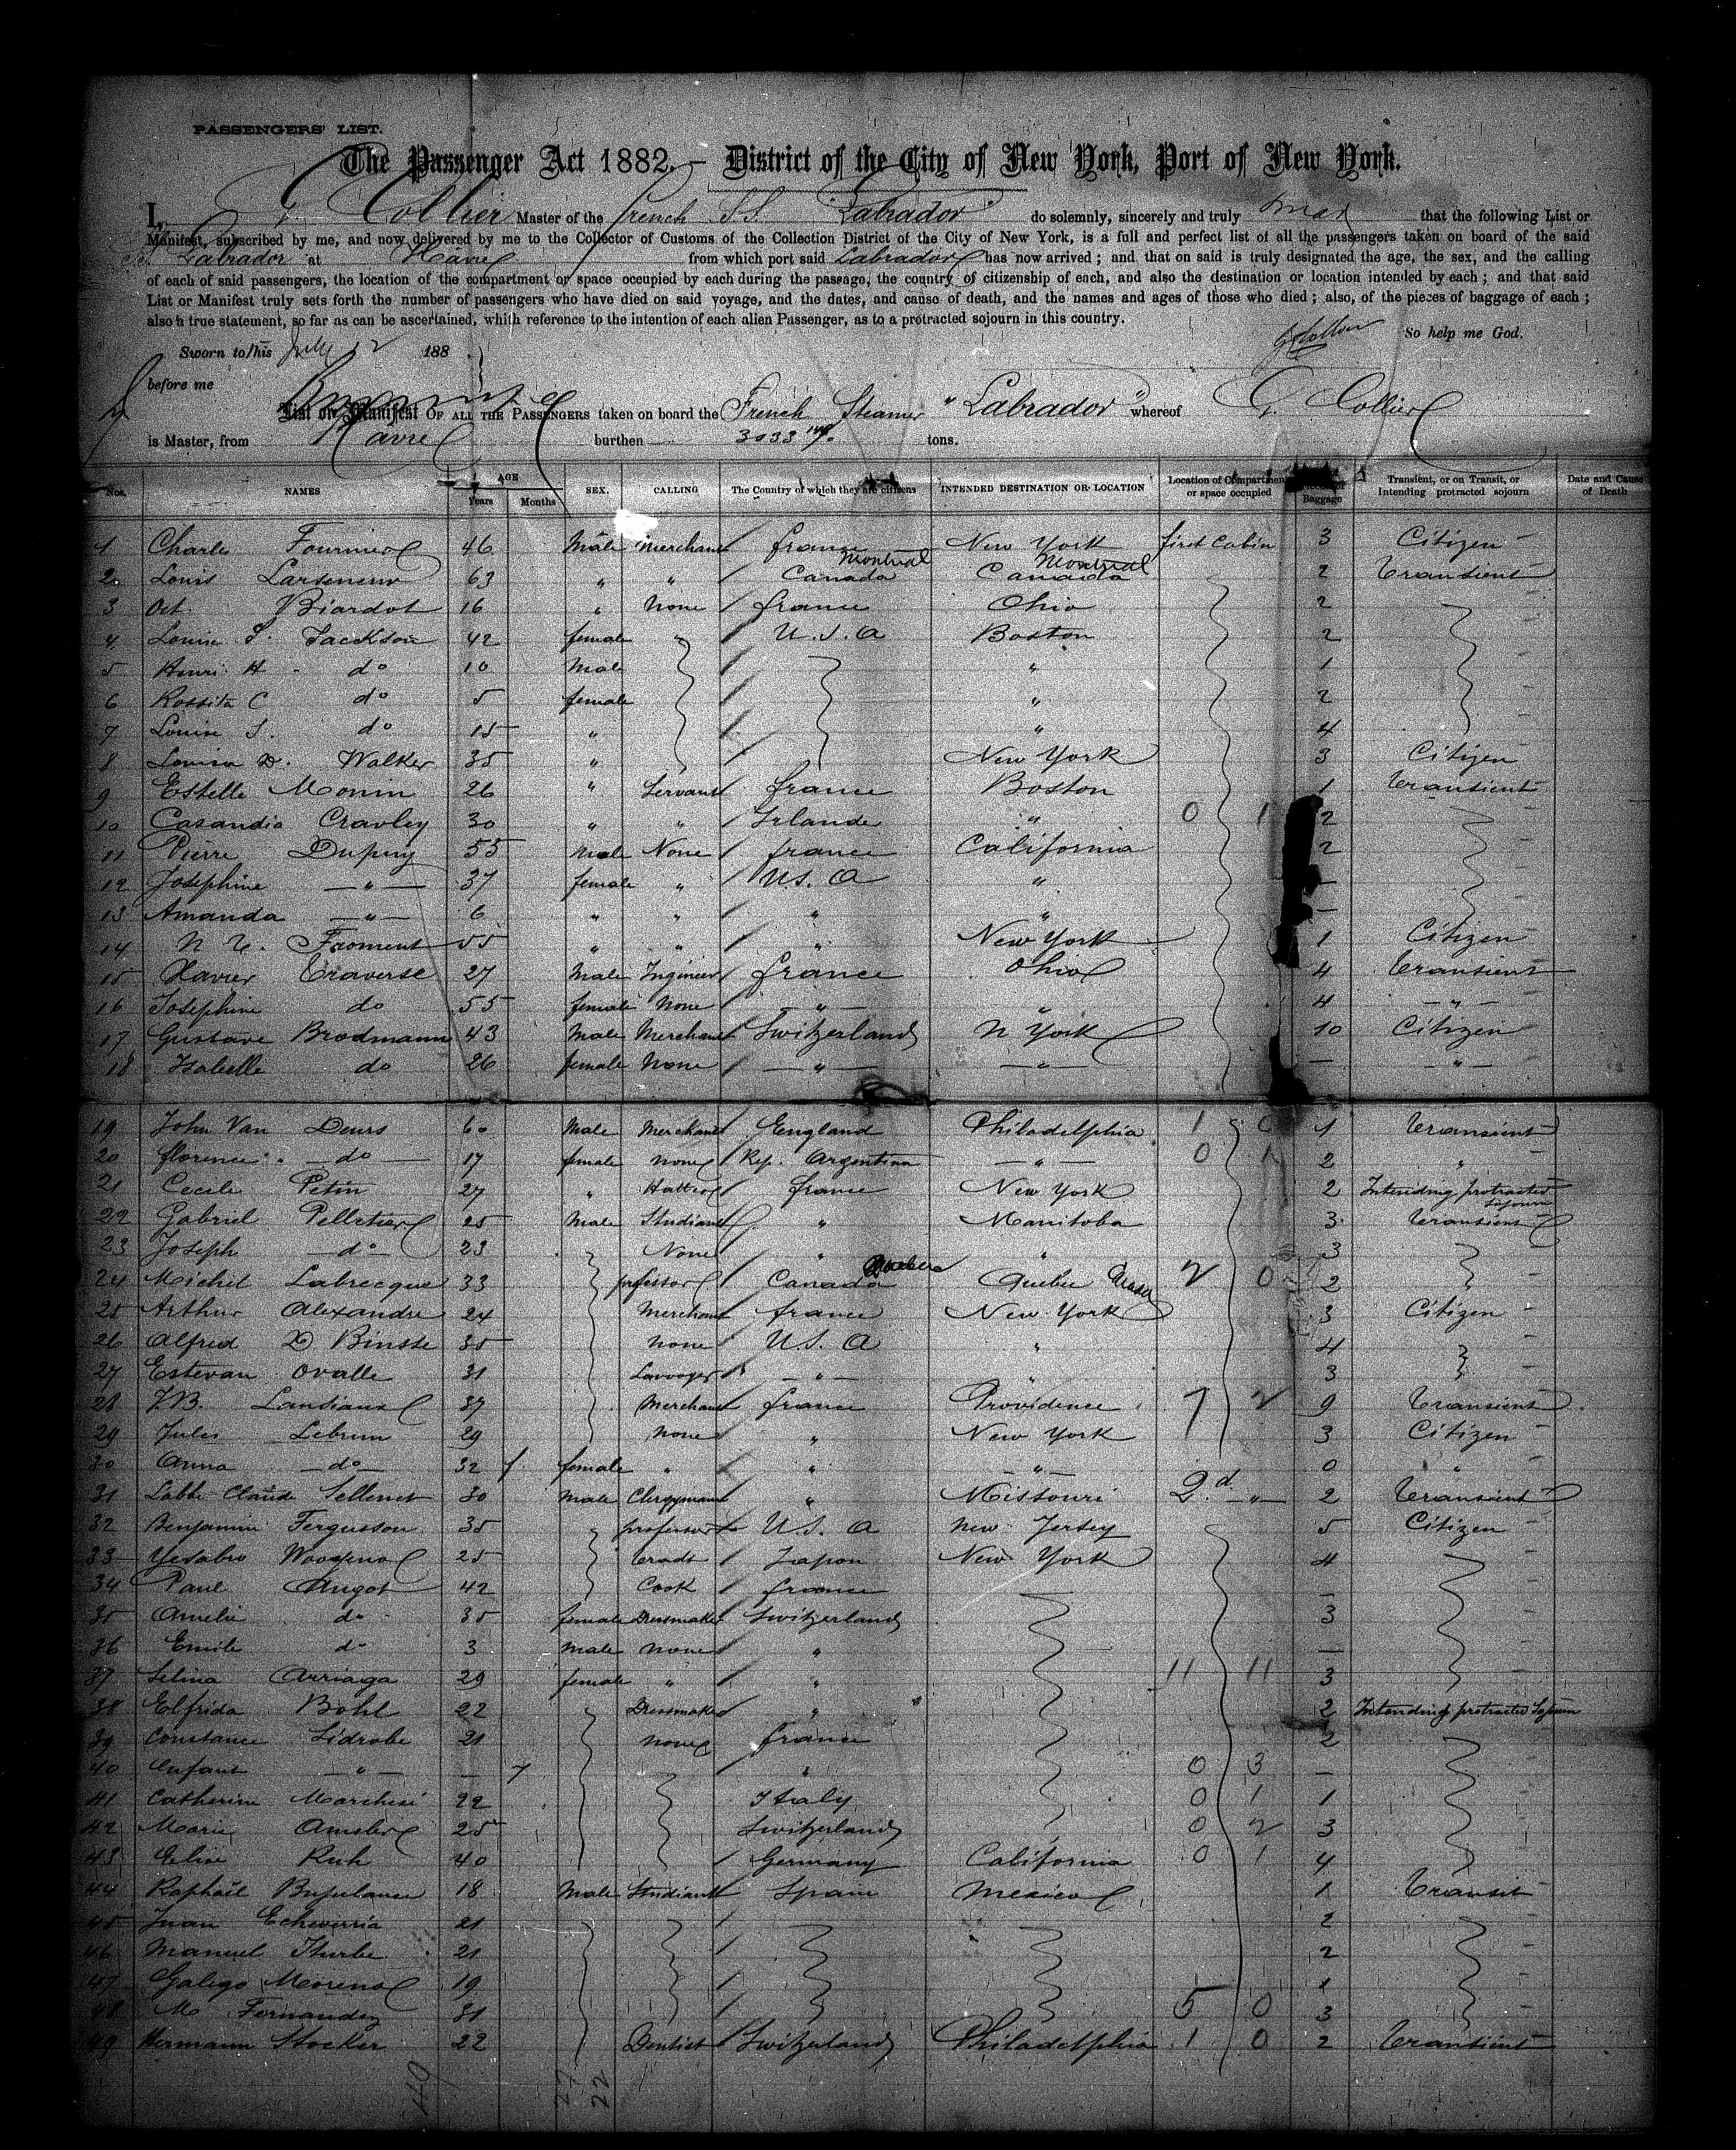 PASSENGERS' LIST.
The Passenger Act 1882. — District of the City of New York, Port of New York.
I, G. Collier Master of the french S.S. "Labrador" do solemnly, sincerely and truly that the following List or
Manifest, subscribed by me, and now delivered by me to the Collector of Customs of the Collection District of the City of New York, is a full and perfect list of all the passengers taken on board of the said
Labrador at Havre from which port said Labrador has now arrived; and, that on said is truly designated the age, the sex, and the calling
of each of said passengers, the location of the compartment or space occupied by each during the passage, the country of citizenship of each, and also the destination or location intended by each; and that said
List or Manifest truly sets forth the number of passengers who have died on said voyage, and the dates, and cause of death, and the names and ages of those who died; also, of the pieces of baggage of each;
also a true statement, so far as can be ascertained, whith reference to the intention of each alien Passenger, as to a protracted sojourn in this country.
So help me God.
Sworn to this July 12 188
before me
List or Manifest OF ALL THE PASSENGERS taken on board the French Steamer "Labrador" whereof G. Collier
is Master, from Havre burthen 3033 tons.
Nos. NAMES AGE Years Months SEX. CALLING The Country of which they are citizens INTENDED DESTINATION OR LOCATION Location of Compartment or space occupied Baggage Transient, or on Transit, or Intending protracted sojourn Date and Cause of Death
1 Charles Fournier 46 Male Merchant france New York first Cabin 3 Citizen
2 Louis 63 " " Montreal Canada Montreal Canada 2 Transient
3 Oct. Biardot 16 " None france Ohio 2
4 Louise S. Jackson 42 female " U.S.A Boston 2
5 Henri H do 10 Male " 1
6 Rossita C do 5 female " 2
7 Louise S. do 15 " " 4
8 Louisa D. Walker 35 " New York 3 Citizen
9 Estelle Monin 26 " Servant france Boston 1 Transient
10 Casandia Cravley 30 " " Irlande " 0 1 2
11 Pierre Dupuy 55 Male None france California 2
12 Josephine — " — 37 female " U.S.A " —
13 Amanda — " — 6 " " " " —
14 Froment 55 " " " New York 1 Citizen
15 Xavier Traverse 27 Male Ingénieur france Ohio 4 Transient
16 Josephine do 55 female None — " — " 4 — " —
17 Gustave Brodmann 43 Male Merchant Switzerland N York 10 Citizen
18 Isabelle do 26 female None — " — — " — — — " —
19 John Van Deurs 60 Male Merchant England Philadelphia 1 0 1 Transient
20 florence do 17 female none Rep. Argentina — " — 0 1 2 "
21 Cecile Petin 27 " Hatter france New York 2 Intending protracted Sojourn
22 Gabriel Pelletier 25 Male Studiant " Manitoba 3 Transient
23 Joseph do 23 None " " 3
24 Michel Labrecque 33 professor Canada Quebec Quebec 2 0 2
25 Arthur Alexandre 24 Merchant france New York 3 Citizen
26 Alfred D Binsse 35 none U.S. A " 4
27 Estevan Ovalle 31 — " — " 3
28 J.B. Lantiaux 37 Merchant france Providence 7 2 9 Transient
29 Jules Lebrun 29 none " New York 3 Citizen
30 Anna do 32 female " " — " — 0 "
31 Labbe Claude Sellenet 30 Male Clergyman " Missouri 2d — " — 2 Transient
32 Benjamin Fergusson 35 professor U.S. A New Jersey 5 Citizen
33 25 Japon New York 4
34 Paul Angot 42 Cook france —
35 Amelie do 35 female Dressmaker Switzerland 3
36 Emile do 3 Male none " —
37 Selina Arriaga 29 female " " 11 11 3
38 Elfrida Bohl 22 Dressmaker " 2 Intending protracted Sojourn
39 Constance Lidrobe 21 none france 2
40 Enfant — " — — 7 " 0 3 —
41 Catherine Marchesi 22 Italy 0 1 1
42 Marie Amsler 25 Switzerland 0 2 3
43 Elise Ruh 40 Germany California 0 1 4
44 Raphaël 18 Male Studiant Spain Mexico 1 Transit
45 Juan Echeverria 21 2
46 Manuel Iturbe 21 2
47 Galigo Moreno 19 1
48 M. Fernandez 31 5 0 3
49 Hermann Stocker 22 Dentist Switzerland Philadelphia 1 0 2 Transient
49 27 22